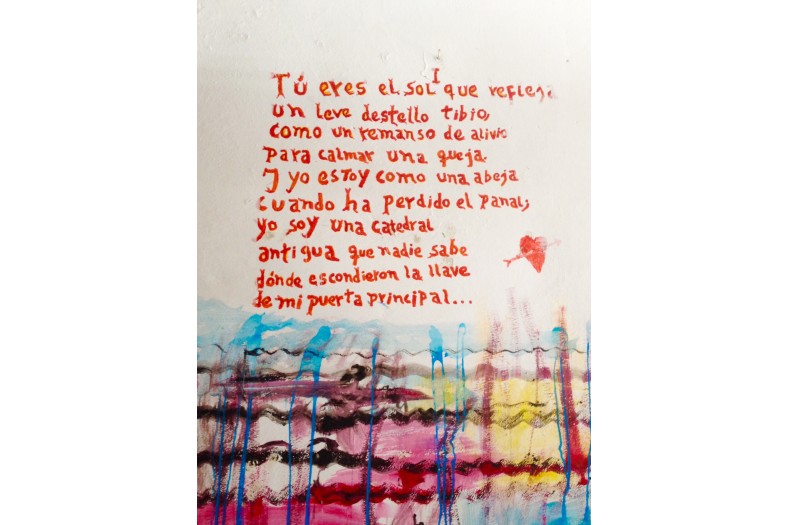 I
Tú eres el sol que refleja
un leve destello tibio,
como un remanso de alivio
para calmar una queja.
Y yo estoy como una abeja
cuando ha perdido el panal;
yo soy una catedral
antigua que nadie sabe
dónde escondieron la llave
de mi puerta principal...